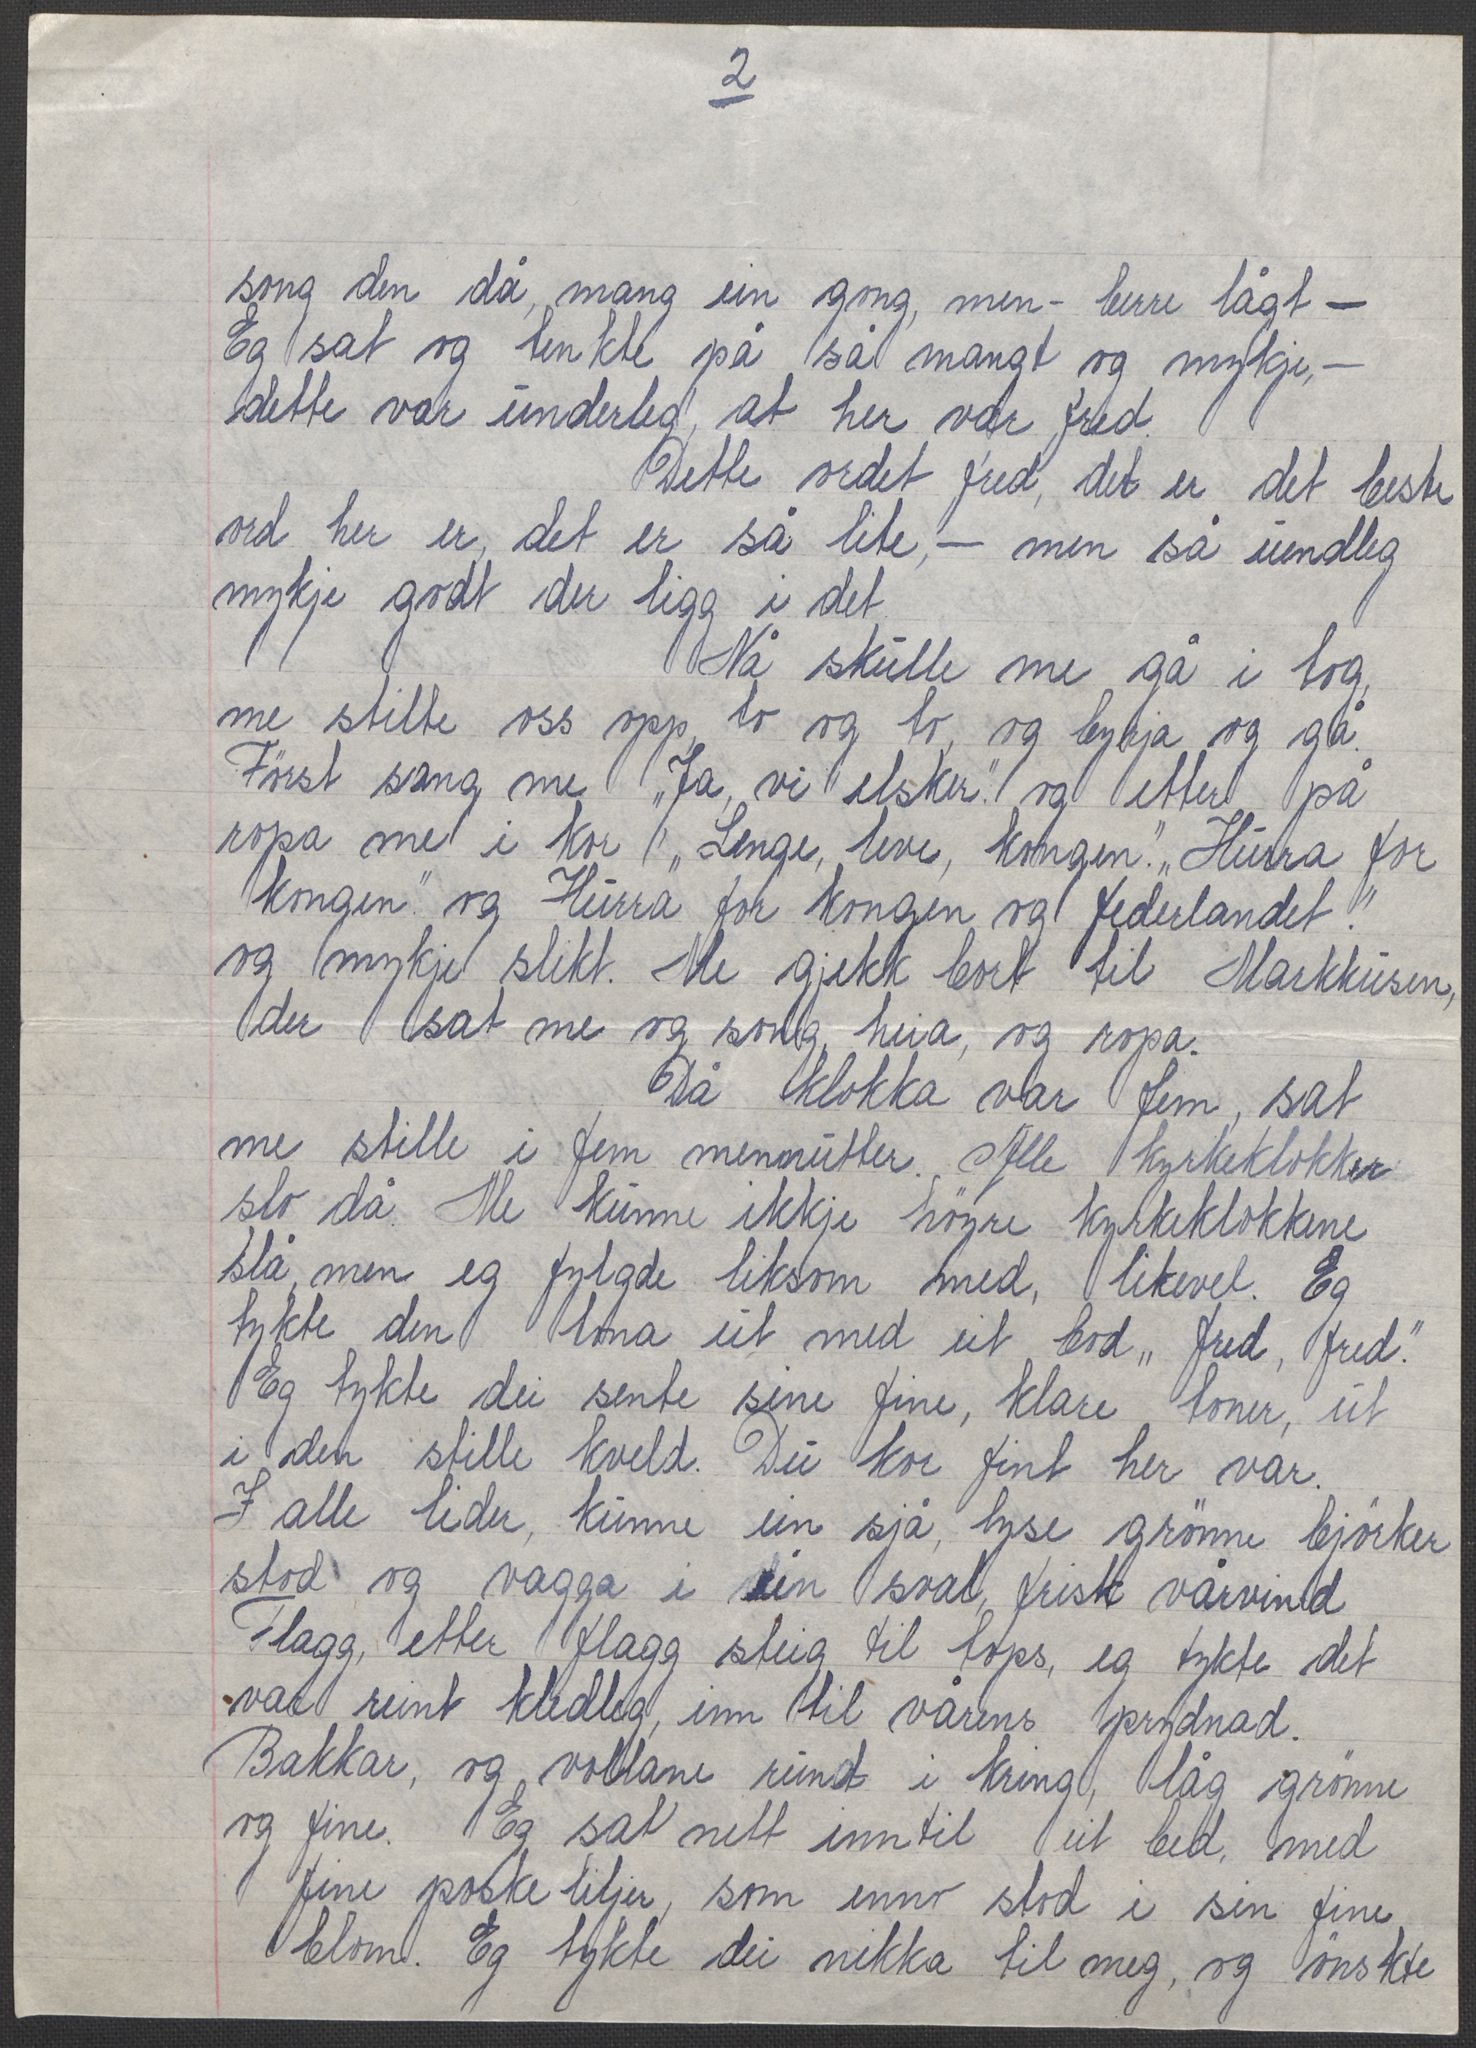 2
song den då, mang ein gong, men - berre lågt —
Eg sat og tenkte på så mangt og mykje, —
dette var underleg, at her var fred.
Dette ordet fred, det er det beste
ord her er, det er så lite, — men så uendleg
mykje godt der ligg i det.
Nå skulle me gå i tog,
me stilte oss opp, to og to, og byrja og gå.
Först sang me „Ja, vi elsker." og etter på
ropa me i kor „Lenge, leve, kongen." „Hurra for
kongen" og Hurra for kongen og federlandet."
og mykje slikt. Me gjekk bort til Markhusen,
der sat me og song, heia, og ropa.
Då klokka var fem, sat
me stille i fem menutter. Alle kyrkeklokker
slo då. Me kunne ikkje höyre kyrkeklokkene
slå, men eg fylgde liksom med, likevel. Eg
tykte den tona ut med eit bod „fred, fred."
Eg tykte dei sente sine fine, klare toner, ut
i den stille kveld. Du kor fint her var.
I alle lider, kunne ein sjå, lyse grönne björker
stod og vagga i ein sval, frisk vårvind
Flagg, etter flagg steig til tops, eg tykte det
var reint kledleg, inn til vårens prydnad.
Bakkar, og vollane rundt i kring, låg grönne
og fine. Eg sat nett inntil eit bed, med
fine poske liljer, som enno stod i sin fine
blom. Eg tykte dei nikka til meg, og önskte